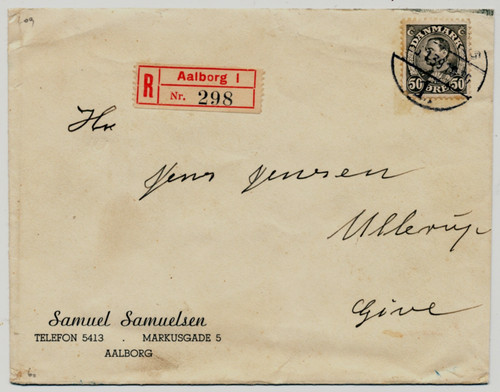 DANMARK
50 50
ØRE
R Aalborg 1
Nr. 298
Hr.
Jens Jensen
Ullerup
Give
Samuel Samuelsen
TELEFON 5413 . MARKUSGADE 5
AALBORG